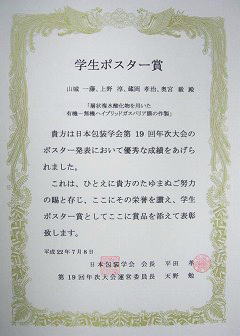 学生ポスター賞
山城 一藤、上野 淳、蔵岡 孝治、奥宮 毅 殿
「層状複水酸化物を用いた
有機－無機ハイブリッドガスバリア膜の作製」
貴方は日本包装学会第 19 回年次大会の
ポスター発表において優秀な成績をあげ
られました。
これは、ひとえに貴方のたゆまぬご努力
の賜と存じ、ここにその栄誉を讃え、学生
ポスター賞としてここに賞品を添えて表彰
致します。
平成 22 年 7 月 8 日
日本包装学会 会長 平田 孝
第 19 回年次大会運営委員長 天野 勉